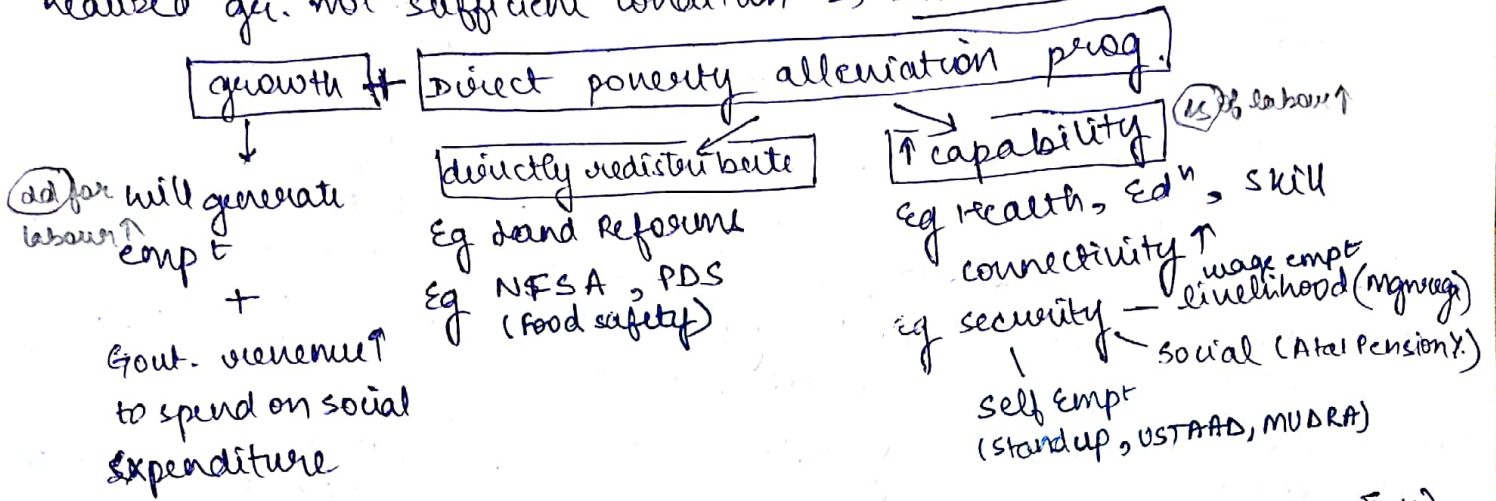 realised gr. not sufficient condition
growth + Direct poverty alleviation prog.
dd for labour↑
will generate
empt
+
Govt. revenue↑
to spend on social
Expenditure
directly redistribute
Eg Land Reforms
Eg NFSA, PDS
(Food safety)
↑ capability
ss of labour↑
Eg Health, Edⁿ, skill
connectivity↑
Eg security – wage empt
livelihood (mgnrega)
social (Atal Pension Y.)
self Empt
(standup, USTAAD, MUDRA)